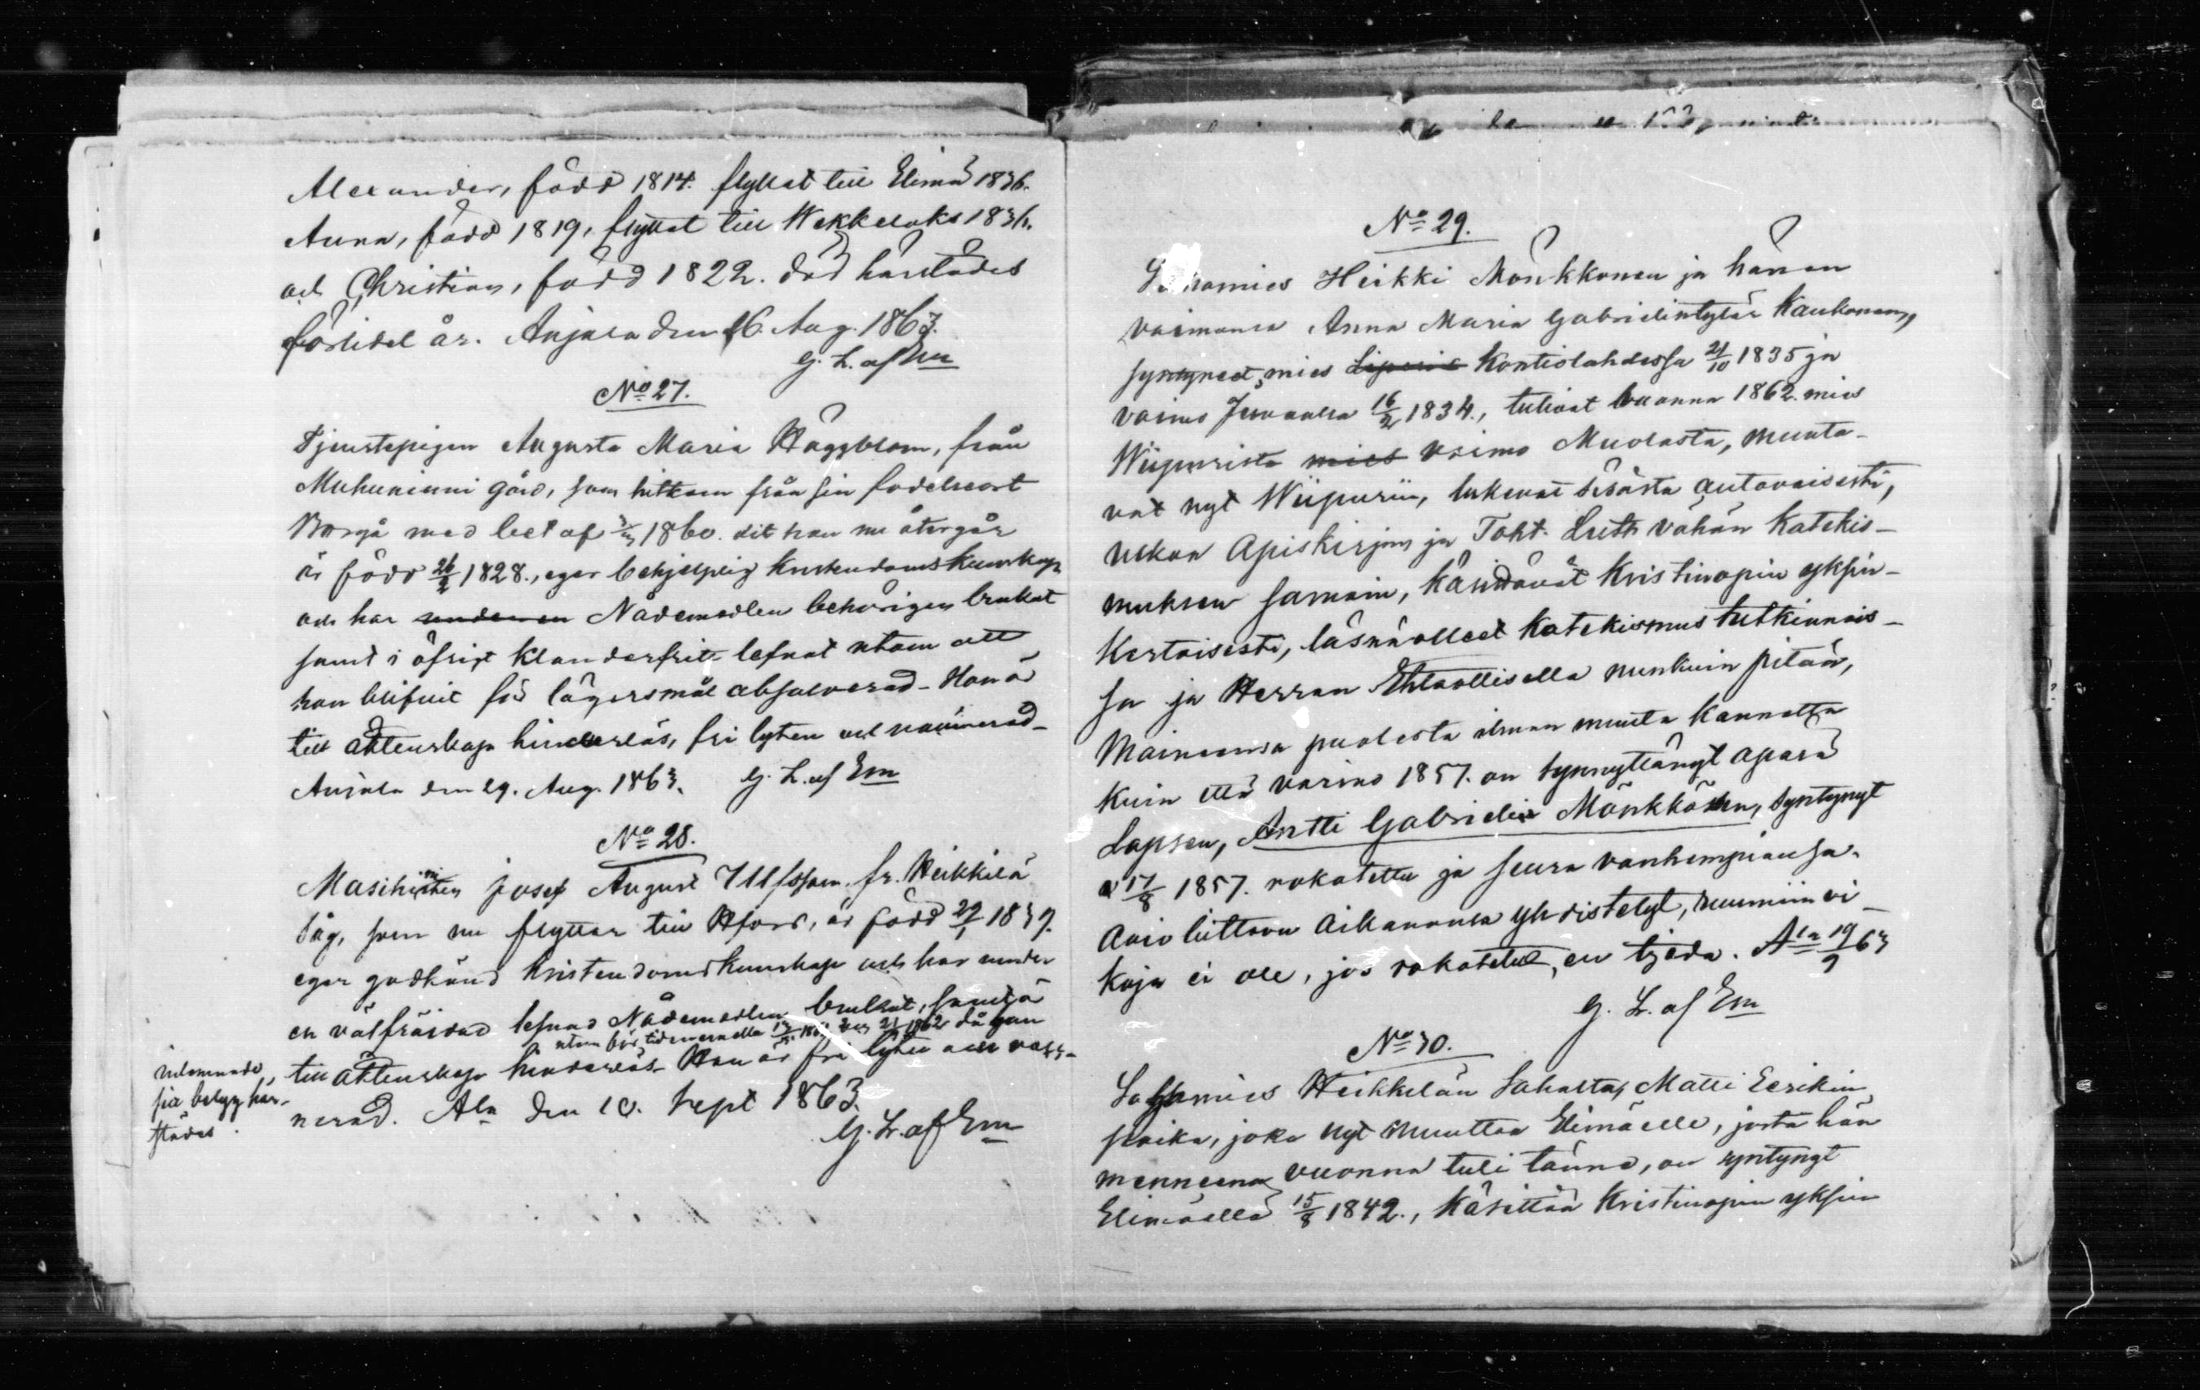 Alexander, född 1814. flyttat till Elimä 1836.
Anna, född 1819, flyttat till Wekkelaks 1836.
och Christian, född 1822. död härstädes
förlidet år. Anjala den 16. Aug. 1863.
G. L. af Em
No 27.
Tjenstepigan Augusta Maria Häggblom, från
Muhuniemi gård, som hitkom från sin födelseort
Borgå med bet af 1860. dit hon nu återgår
är född 26/2 1828., eger behjelplig kristendoms kunskap
och har under en Nådemedlen behörigen brukat
samt i öfrigt klanderfritt lefvat utom att
hon blifvit för lägersmål absolverad. Hon är
till äktenskap hinderlös, fri lyten och vaccinerad.
Anjala den 29. Aug. 1863. G. L. af Em
No 28.
Maskinisten Josef August fr. Heikkilä
såg, som nu flyttar till Hfors, är född 29/1 1839.
eger godkänd kristendomskunskap och har under
en välfräjdad lefnad Nådemedlen brukat, samt är
utom för tiden emellan 1861 och 21/9 1862 då han
till äktenskap hinderlös. Han är fri lyten och vacci-
nerad. Ala den 10. Sept 1863.
G. L. af Em
utomlands,
på belygg här-
städes.
No 29.
Sahamies Heikki Mönkkönen ja hänen
vaimonsa Anna Maria Gabrielintytär Kaukonen,
syntyneet, mies Liperis Kontiolahdessa 21/10 1835 ja
vaimo Juvalla 16/2 1834., tulivat vuonna 1862. mies
Wiipurista mies vaimo Muolasta, muuta-
vat nyt Wiipuriin, lukevat sisästä auttavaisesti,
ulkoa Apiskirjan ja Toht. Luth vähän Katekis-
muksen samoin, käsittävät Kristinopin yksin-
kertaisesti, läsnä olleet Katekismus tutkinnois-
sa ja Herran Ehtoollisella niinkuin pitää,
Maineensa puolesta ilman muuta kannetta
kuin että vaimo 1857. on synnyttänyt äpärä
Lapsen, Antti Gabriel Mönkkösen, syntynyt
17/8 1857. rokotettu ja seuraa vanhempiansa.
Avioliittoon aikananansa yhdistetyt, ruumiin vi-
koja ei ole, jos rokotetut, en tjedä. Ala 19/9 63
G. L. af Em
No 30.
Sahamies Heikkilän Sahalta, Matti Eerikin
poika, joka nyt muuttaa Elimäelle, josta hän
menneenä vuonna tuli tänne, on syntynyt
Elimäellä 15/8 1842., käsittää Kristinopin yksin